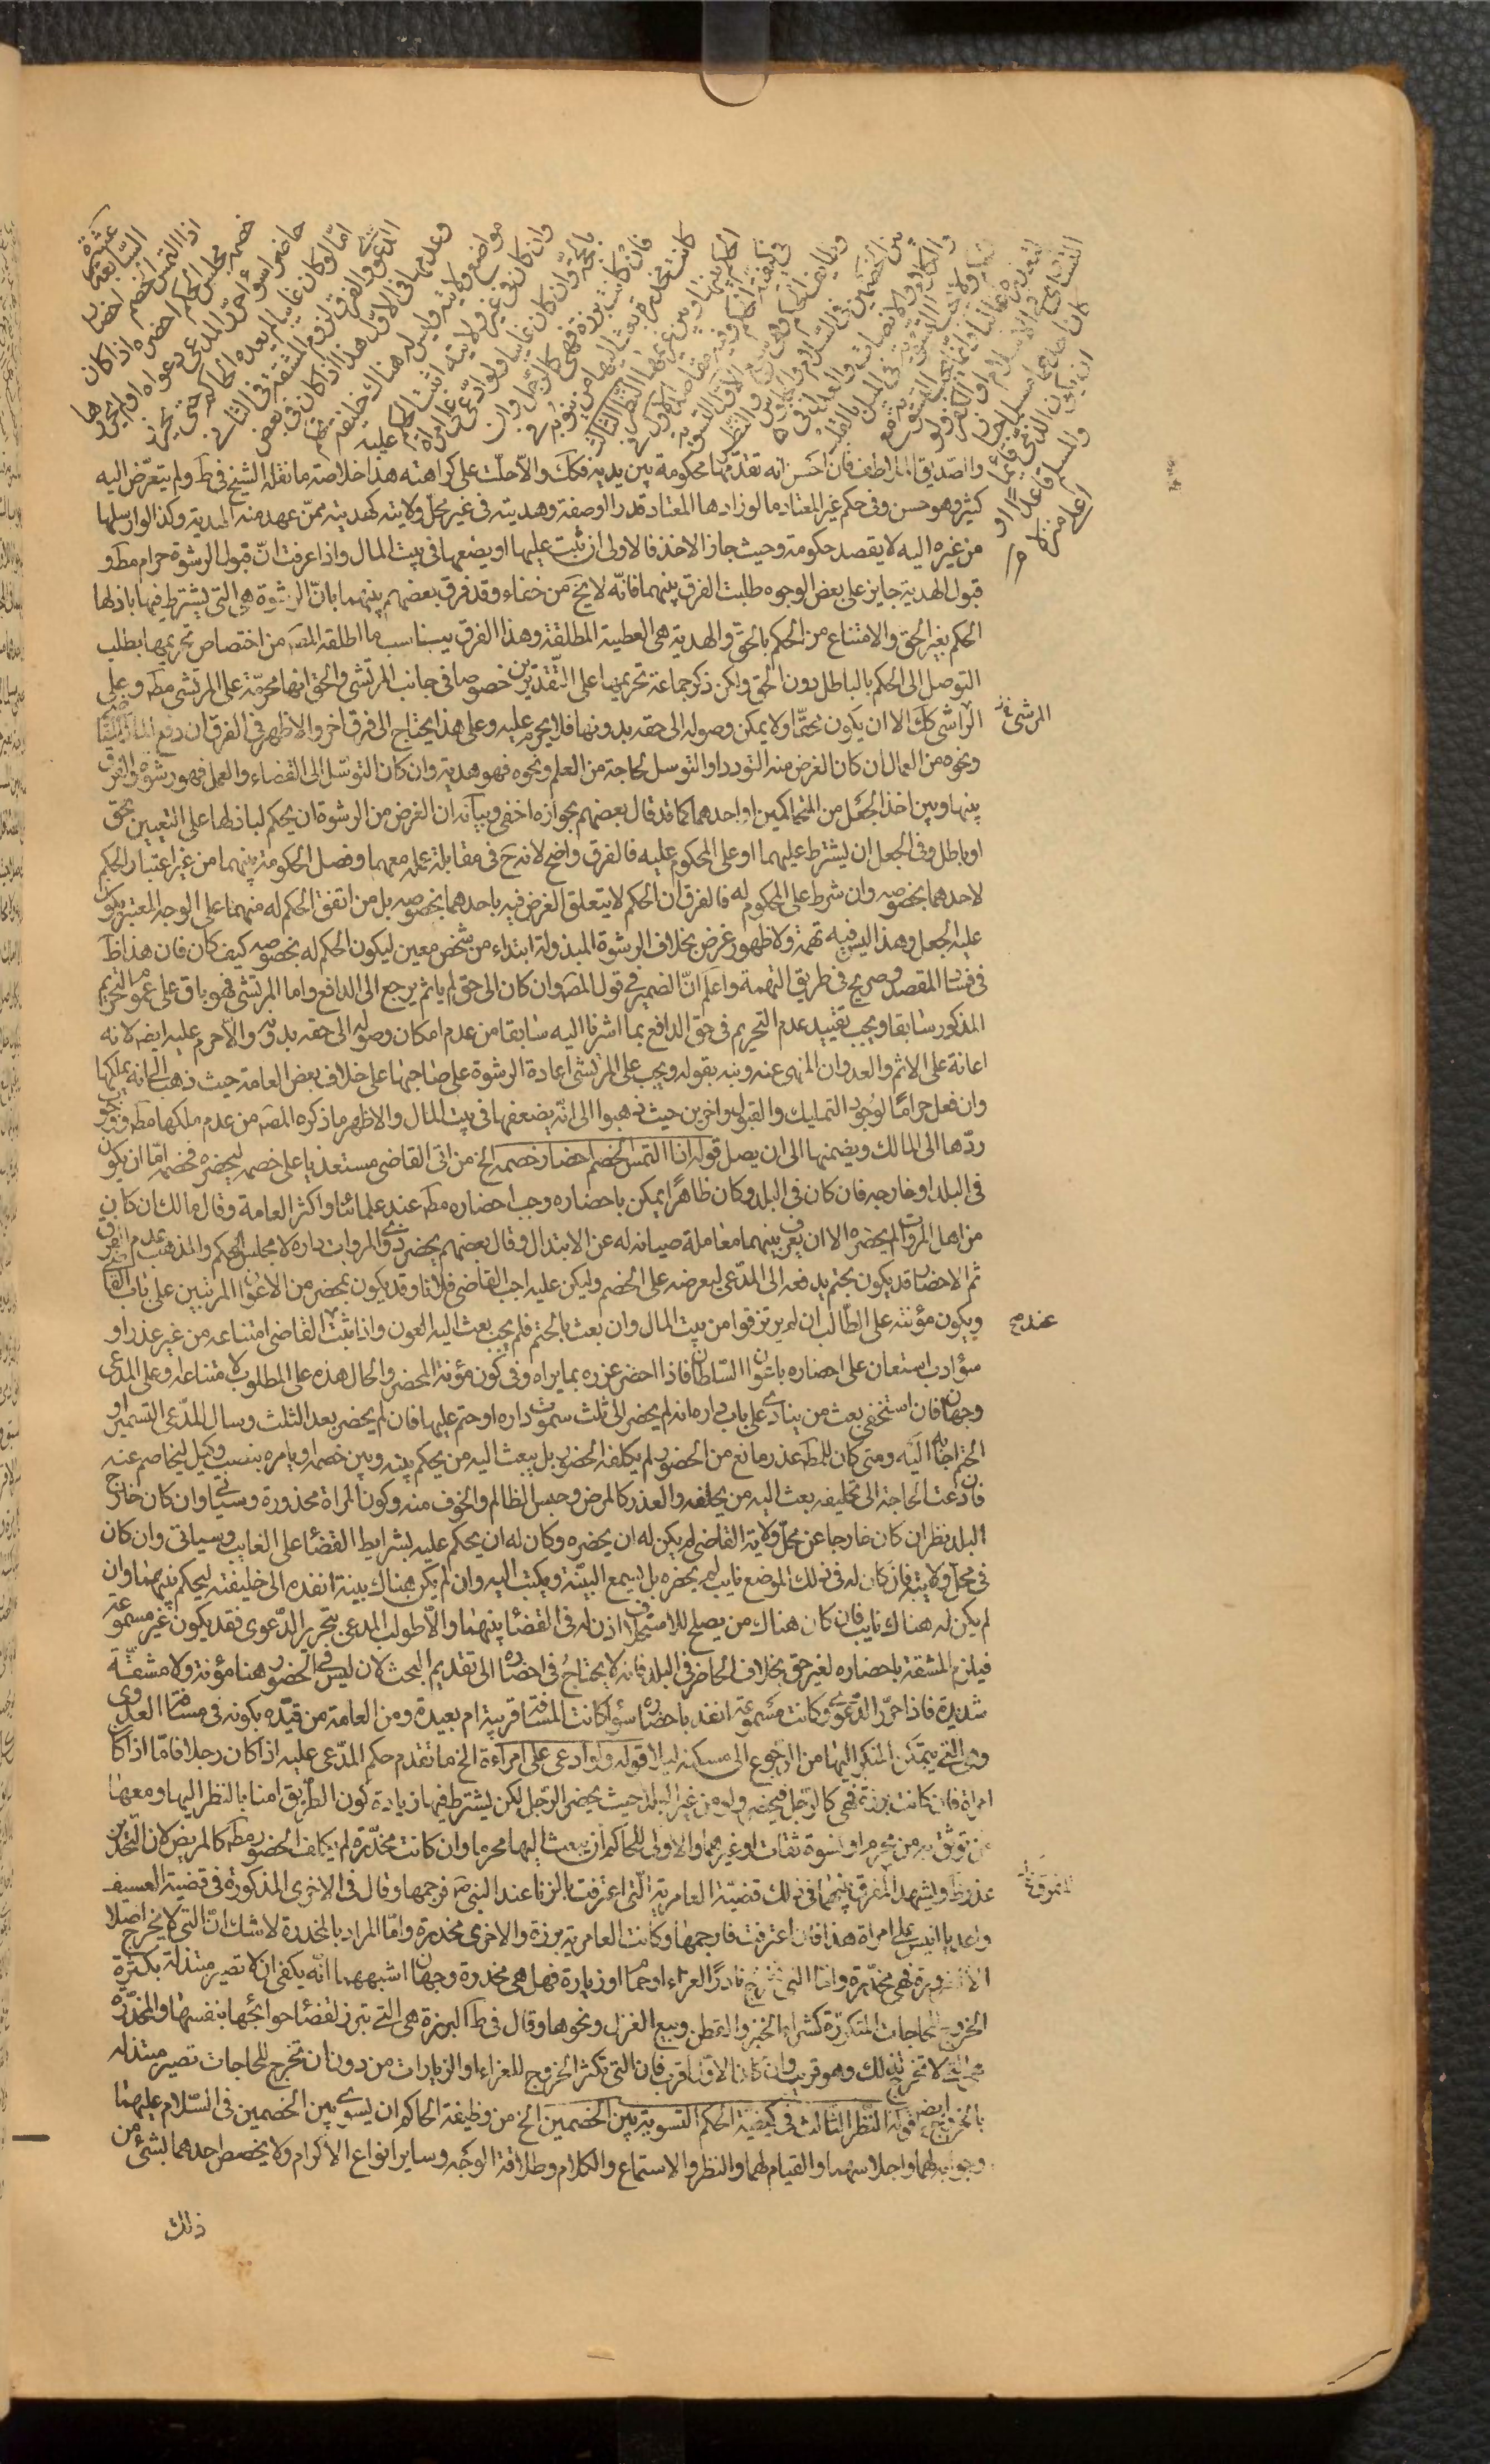 عشرة
السابعة اذا التمس الخصم احضار
خصمه مجلس الحكم احضره اذا كان
حاضرا سواء حرر المدعي دعواه او لم يحررها
اما لو كان غايبا لم يعده الحاكم حتى يحرر
الدعوى والفرق لزوم المشقة في الثاني
وعدمها في الاول هذا اذا كان في بعض
مواضع ولايته وليس له هناك خليفة يحكم
وان كان في غير ولايته اثبت الحكم عليه
بالحجة وان كان غايبا ولو ادعى على امراة
فان كانت برزة فهي كالرجل وان
كانت مخدرة بعث اليها من ينوبه في
الحكم بينها وبين غريمها النظر الثالث
في كيفية الحكم وفيه مقاصد الاول في
وظايف الحاكم وهي سبع الاولى التسوية
بين الخصمين في السلام والجلوس والنظر
والكلام والانصات والعدل في
الحكم ولا تجب التسوية في الميل بالقلب
لتعذره غالبا وانما تجب التسوية مع
التساوي في الاسلام او الكفر ولو
كان احدهما مسلما جاز
ان يكون الذمي قائما
والمسلم قاعدا او
اعلى منزلا
والصديق الملاطف فان احسّ انه تقدّمها لحكومة بين يديه فكك والّا حلّت على كراهته هذا خلاصة ما نقله الشيخ في ط ولم يتعرّض اليه
كثير وهو حسن وفي حكم غير المعتاد ما لو زادها المعتاد قدرا او صفة وهديته في غير محلّ ولايته كهديته ممّن عهد منه الهدية وكذا لو ارسلها
من غيره اليه لا بقصد حكومة وحيث جاز الاخذ فالاولى ان يثبت عليها او يضعها في بيت المال واذا عرفت انّ قبول الرشوة حرام مط و
قبول الهدية جايز على بعض الوجوه طلبت الفرق بينهما فانّه لا يخ من خفاء وقد فرق بعضهم بينهما بانّ الرشوة هي التي يشترط فيها باذلها
الحكم بغير الحق والامتناع من الحكم بالحق والهدية هي العطية المطلقة وهذا الفرق يناسب ما اطلقه المص من اختصاص تحريمها بطلب
التوصل الى الحكم بالباطل دون الحق ولكن ذكر جماعة تحريمها على التقديرين خصوصا في جانب المرتشي والحق انها محرّمة على المرتشي مط وعلى
المرتشي
الراشي كك الا ان يكون محقّا ولا يمكن وصوله الى حقه بدونها فلا يحرم عليه وعلى هذا يحتاج الى فرق اخر والاظهر في الفرق ان دفع المال الى القاضي
ونحوه من العمال ان كان الغرض منه التودد او التوسل لحاجة من العلم ونحوه فهو هدية وان كان التوسّل الى القضاء والعمل فهو رشوة والفرق
بينها وبين اخذ الجعل من المتحاكمين او احدهما كما قد قال بعضهم بجوازه اخفى وبيانه ان الغرض من الرشوة ان يحكم لباذلها على التعيين بحق
او باطل وفي الجعل ان يشترط عليهما او على المحكوم عليه فالفرق واضح لانه ح في مقابلة عمله معهما وفصل الحكومة بينهما من غير اعتبار الحكم
لاحدهما بخصوصه وان شرط على المحكوم له فالفرق ان الحكم لا يتعلق الغرض فيه باحدهما بخصوصه بل من اتفق الحكم له منهما على الوجه المعتبر يكون
عليه الجعل وهذا ليس فيه تهمة ولا ظهور غرض بخلاف الرشوة المبذولة ابتداء من شخص معين ليكون الحكم له بخصوصه كيف كان فان هذا ظ
في فساد المقصد وصريح في طريق التهمة واعلم انّ الضمير في قول المص وان كان الى حق لم ياثم يرجع الى الدافع واما المرتشي فهو باق على عموم التحريم
المذكور سابقا ويجب تقييد عدم التحريم في حق الدافع بما اشرنا اليه سابقا من عدم امكان وصوله الى حقه بدونه والّا حرم عليه ايض لانه
اعانة على الاثم والعدوان المنهي عنه ونبه بقوله ويجب على المرتشي اعادة الرشوة على صاحبها على خلاف بعض العامة حيث ذهب الى انه يملكها
وان فعل حراما لوجود التمليك والقبول واخرين حيث ذهبوا الى انّه يضعها في بيت المال والاظهر ما ذكره المص من عدم ملكها مط ووجوب
ردّها الى المالك ويضمنها الى ان يصل قوله اذا التمس الخصم احضار خصمه الخ من اتى القاضي مستعديا على خصمه ليحضره فخصمه امّا ان يكون
في البلد او خارجه فان كان في البلد وكان ظاهرا يمكن باحضاره وجب احضاره مط عند علمائنا واكثر العامة وقال مالك ان كان
من اهل المروات لم يحضره الا ان يعرف بينهما معاملة صيانة له عن الابتذال وقال بعضهم يحضر ذوي المروات داره لا مجلس الحكم والمذهب عدم الفرق
ثم الاحضار قد يكون بختم يدفعه الى المدّعي ليعرضه على الخصم وليكن عليه اجب القاضي فلانا وقد يكون بمحضر من الاعوان المرتبين على باب القاضي
عندهم
ويكون مؤنته على الطالب ان لم يرتزقوا من بيت المال وان بعث بالختم فلم يجب بعث اليه العون واذا ثبت القاضي امتناعه من غير عذر او
سوء ادب استعان على احضاره باعوان السلطان فاذا احضر عزره بما يراه وفي كون مؤنة المحضر والحال هذه على المطلوب لامتناعه او على المدّعي
وجهان فان استخفى بعث من ينادي على باب داره انه لم يحضر الى ثلث سمرت داره او ختم عليها فان لم يحضر بعد الثلث وسال المدّعي التسمير او
الختم اجابه اليه ومتى كان للمط عذر مانع من الحضور لم يكلفه الحضور بل يبعث اليه من يحكم بينه وبين خصمه او يامره بنصب وكيل ليخاصم عنه
فان دعت الحاجة الى تحليفه بعث اليه من يحلفه والعذر كالمرض وحبس الظالم والخوف منه وكون المراة مخدرة وسياتي وان كان خارج
البلد نظر ان كان خارجا عن محلّ ولاية القاضي لم يكن له ان يحضره وكان له ان يحكم عليه بشرايط القضاء على الغايب وسياتي وان كان
في محل ولايته فان كان له في ذلك الموضع نايب لم يحضره بل يسمع البيّنة ويكتب اليه وان لم يكن هناك بينة انفذه الى خليفته ليحكم بينهما وان
لم يكن له هناك نايب فان كان هناك من يصلح للاستخلاف اذن له في القضاء بينهما والّا طولب المدعي بتحرير الدّعوى فقد يكون غير مسموعة
فيلزم المشقة باحضاره لغير حق بخلاف الحاضر في البلد فانه لا يحتاج في احضاره الى تقديم البحث لان ليس في الحضور هنا مؤنة ولا مشقّة
شديدة فاذا حرّر الدعوى وكانت مسموعة انفذ باحضاره سواء كانت المسافة قريبة ام بعيدة ومن العامة من قيّده بكونه في مسافة العدوى
وهي التي يتمكن المبكر اليها من الرجوع الى مسكنه ليلا قوله ولو ادعى على امراءة الخ ما تقدم حكم المدّعى عليه اذا كان رجلا فامّا اذا كان
امراة فان كانت برزة فهي كالرجل فيحضر ولو من غير البلد حيث يحضر الرجل لكن يشترط فيها زيادة كون الطريق امنا بالنظر اليها ومعها
من توثق به من محرم او نسوة ثقات او غيرهما والاولى للحاكم ان يبعث اليها محرما وان كانت مخدّرة لم يكلف الحضور مط كالمريض لان التخدير
المفرق
عذر ظ ويشهد للفرق بينهما في ذلك قضيّة العامرية الّتي اعترفت بالزنا عند النبي ص فرجمها وقال في الاخرى المذكورة في قضية العسيف
واغد يا انيس على امراة هذا فان اعترفت فارجمها وكانت العامرية برزة والاخرى مخدرة وامّا المراد بالمخدرة لا شك انّ التي لا يخرج اصلا
الا لضرورة فهي مخدّرة واما التي تخرج نادرًا لعزاء او حمّام او زيارة فهل هي مخدرة وجهان اشبههما انّه يكفي ان لا تصير مبتذلة بكثرة
الخروج للحاجات المتكرّرة كشراء الخبز والقطن وبيع الغزل ونحوها وقال في ط البرزة هي التي تبرز لقضاء حوائجها بنفسها والمخدّرة
هي التي لا تخرج لذلك وهو قريب وان كان الاول اقرب فان التي تكثر الخروج للعزاء او الزيارات من دون ان تخرج للحاجات تصير مبتذلة
بالخروج ايض قوله النظر الثالث في كيفية الحكم التسوية بين الخصمين الخ من وظيفة الحاكم ان يسوي بين الخصمين في السّلام عليهما
وجوابه لهما واجلاسهما والقيام لهما والنظر والاستماع والكلام وطلاقة الوجه وساير انواع الاكرام ولا يخصص احدهما بشئ من
ذلك